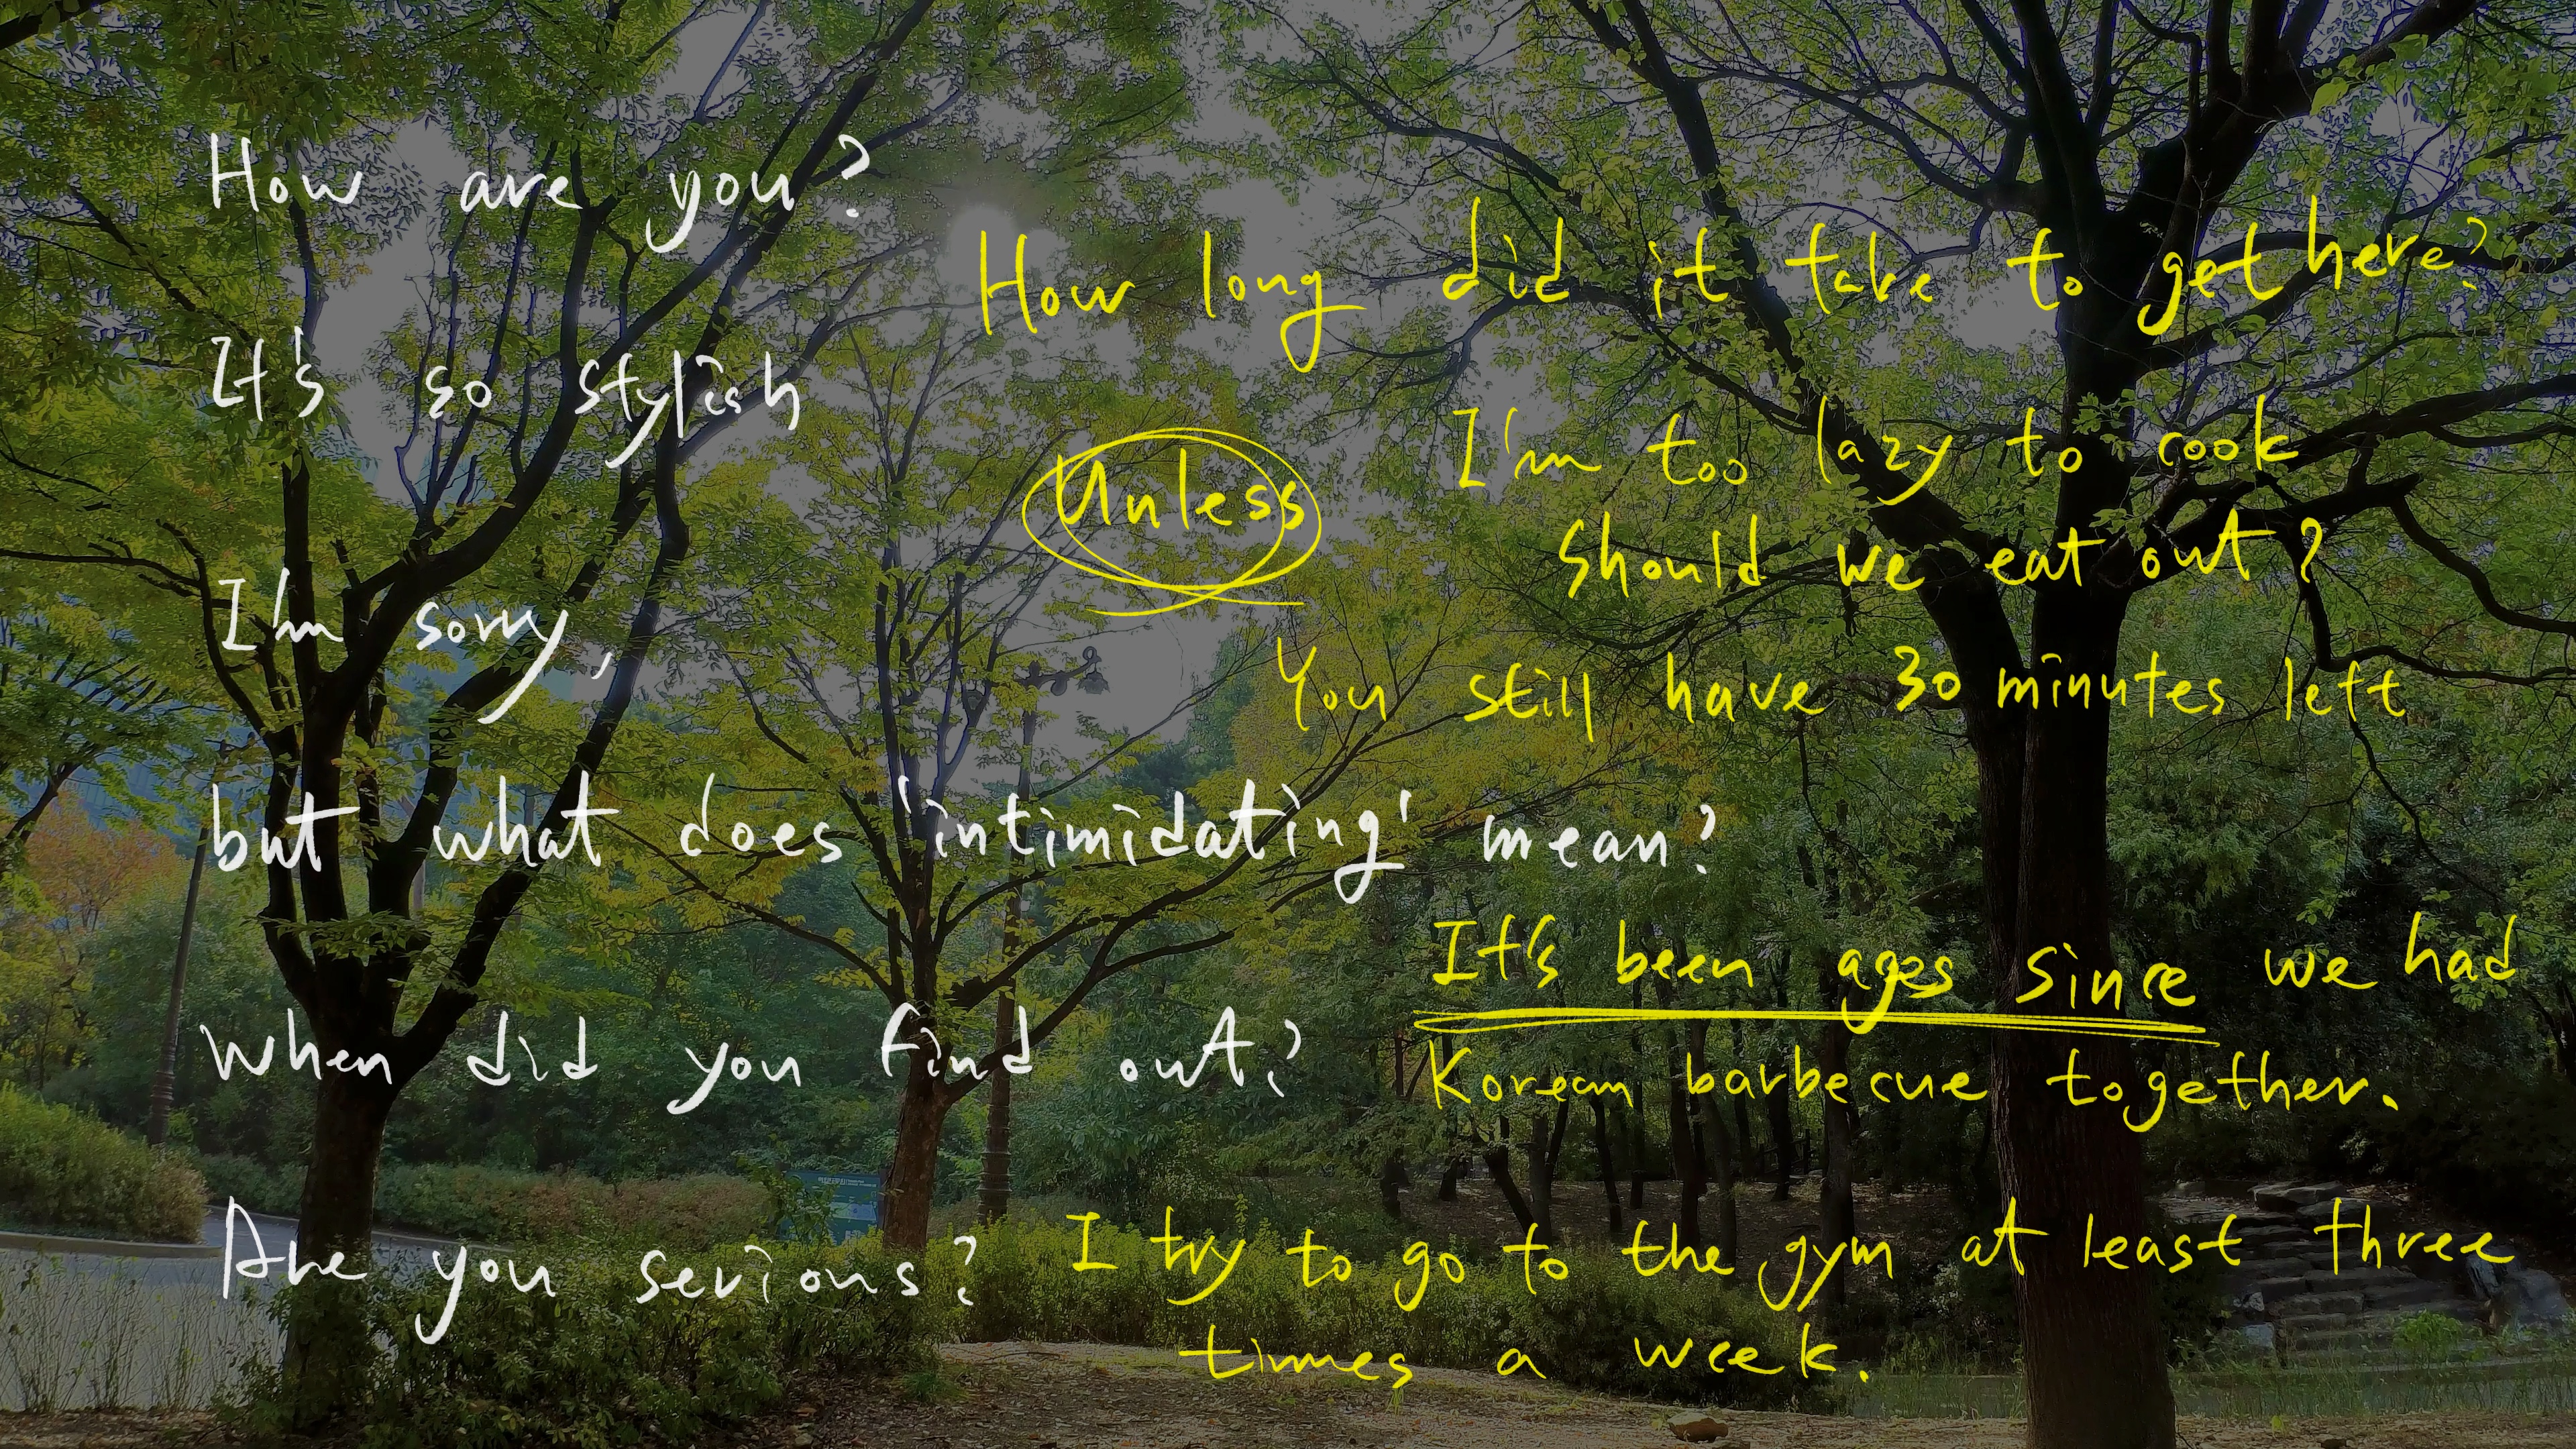 How are you?
It's so stylish
I'm sorry,
but what does 'intimidating' mean?
When did you find out?
Are you serious?
How long did it take to get here?
Unless
I'm too lazy to cook
should we eat out?
You still have 30 minutes left
It's been ages since we had
Korean barbecue together.
I try to go to the gym at least three
times a week.